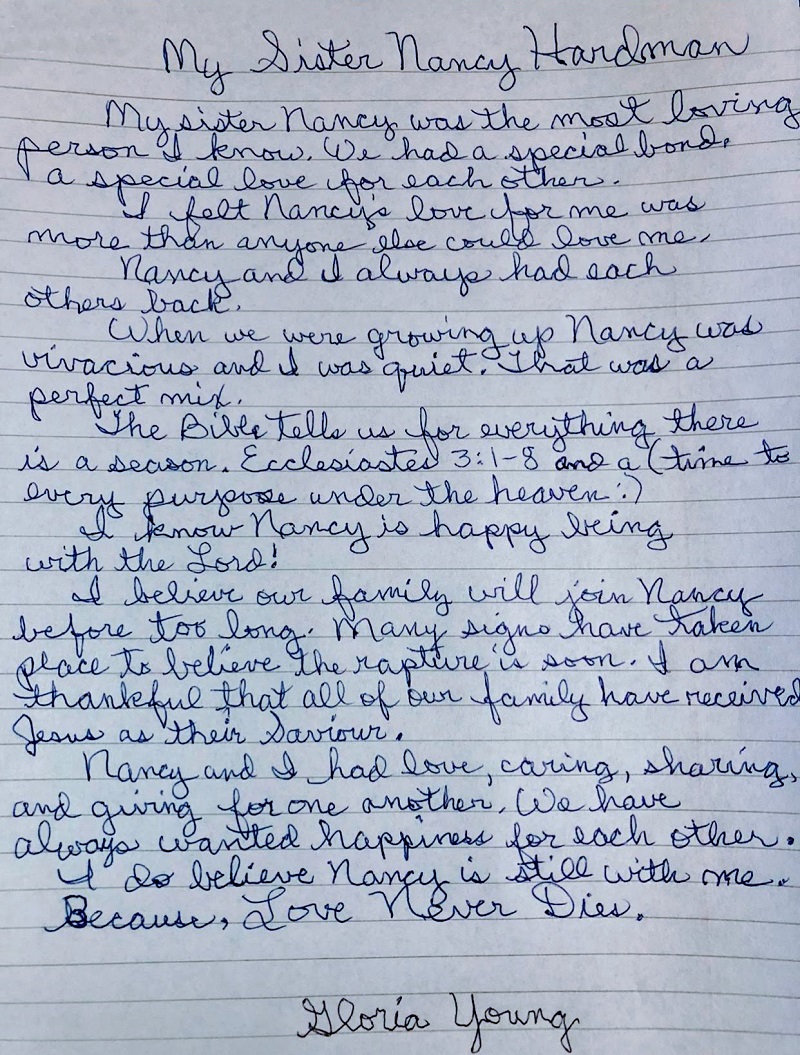 My Sister Nancy Hardman
My sister Nancy was the most loving
person I know. We had a special bond,
a special love for each other.
I felt Nancy's love for me was
more than anyone else could love me.
Nancy and I always had each
others back.
When we were growing up Nancy was
vivacious and I was quiet. That was a
perfect mix.
The Bible tells us for everything there
is a season. Ecclesiastes 3:1-8 and a (time to
every purpose under the heaven:)
I know Nancy is happy being
with the Lord!
I believe our family will join Nancy
before too long. Many signs have taken
place to believe the rapture is soon. I am
thankful that all of our family have received
Jesus as their Saviour.
Nancy and I had love, caring, sharing,
and giving for one another. We have
always wanted happiness for each other.
I do believe Nancy is still with me.
Because, Love Never Dies.
Gloria Young